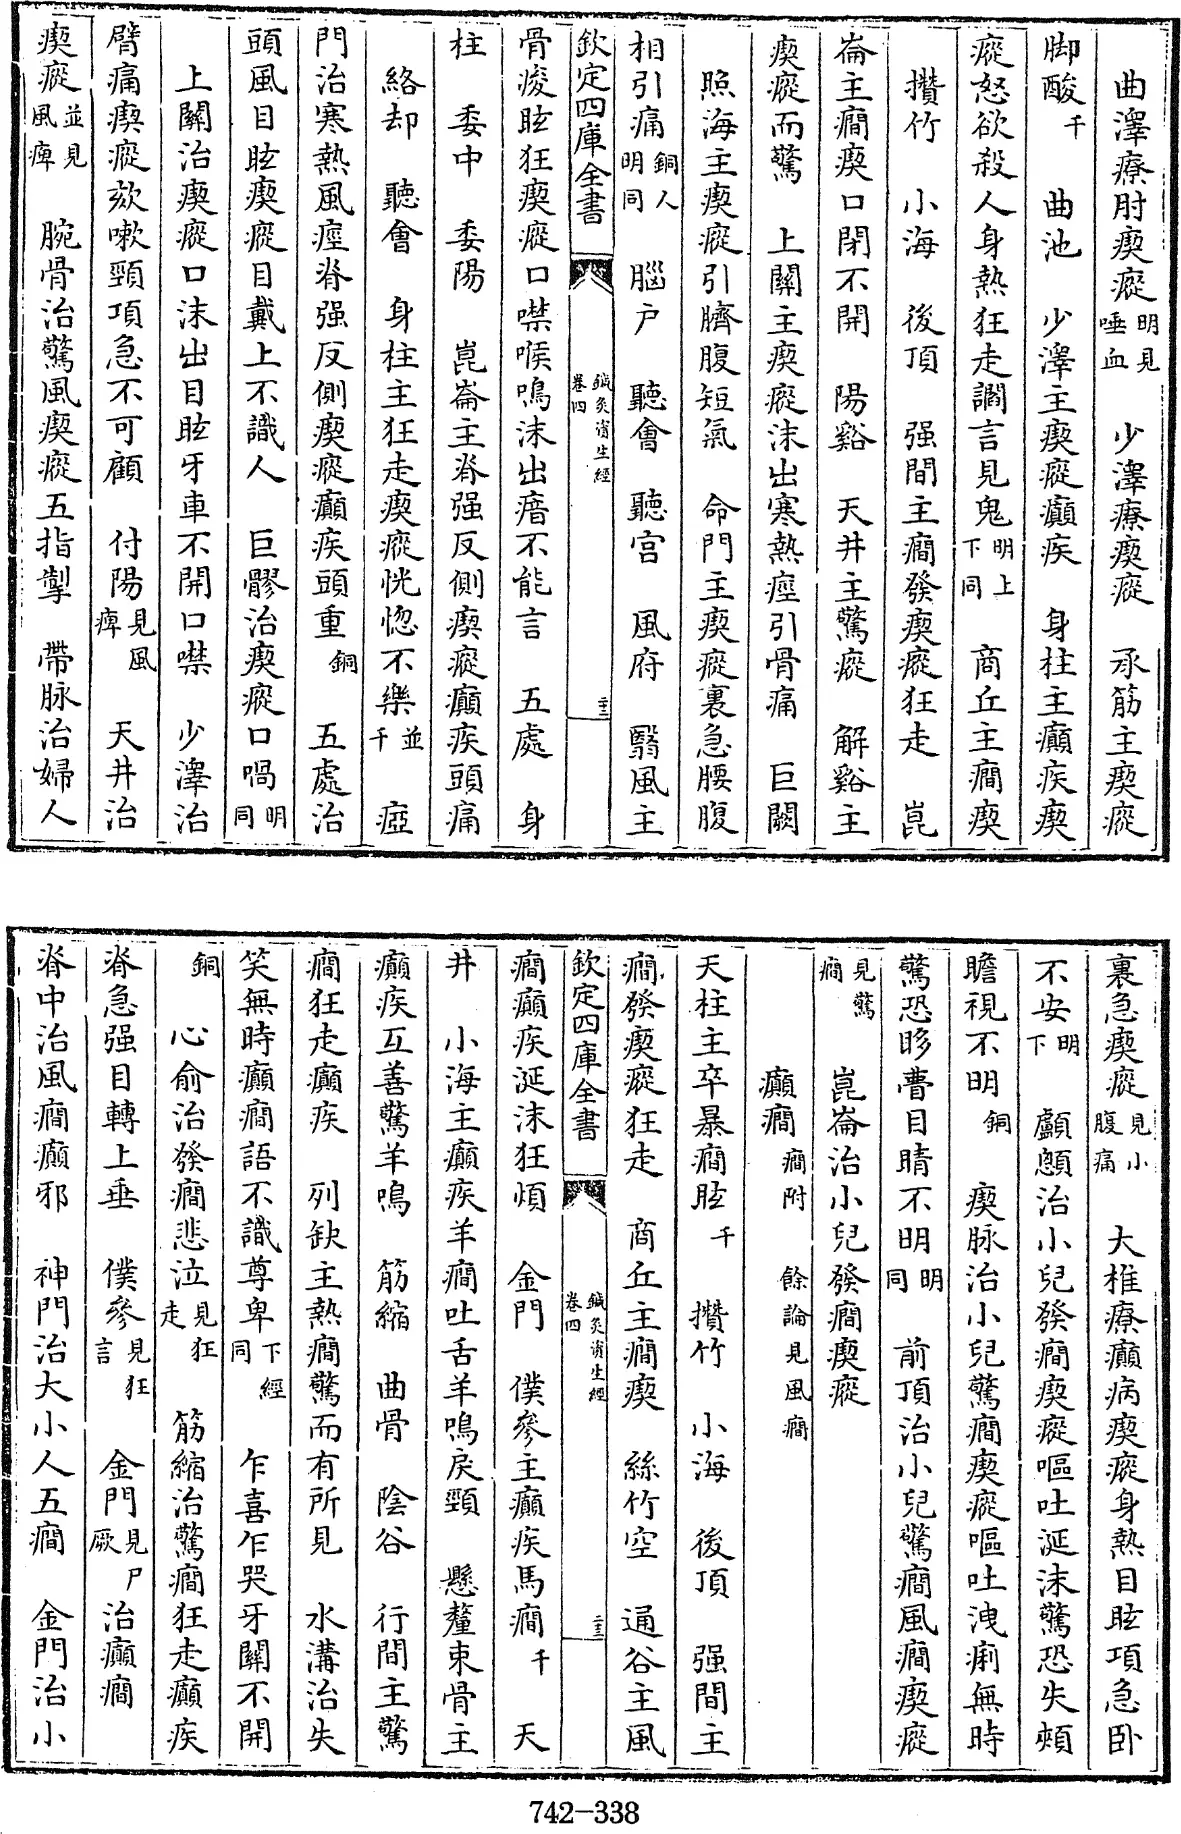 曲澤療肘瘈瘲明見唾血　少澤療瘈瘲　承筋主瘈瘲
脚酸千　曲池　少澤主瘈瘲癲疾　身柱主癲疾瘈
瘲怒欲殺人身熱狂走讇言見鬼明上下同　商丘主癇瘈
攢竹　小海　後頂　强間主癇發瘈瘲狂走　崑
崙主癇瘈口閉不開　陽谿　天井主驚瘲　解谿主
瘈瘲而驚　上關主瘈瘲沫出寒熱痙引骨痛　巨闕
照海主瘈瘲引臍腹短氣　命門主瘈瘲裏急腰腹
相引痛銅人明同　腦户　聽會　聽宫　風府　翳風主
欽定四庫全書　鍼灸資生經卷四　三十二
骨痠眩狂瘈瘲口噤喉鳴沫出瘖不能言　五處　身
柱　委中　委陽　崑崙主脊强反側瘈瘲癲疾頭痛
絡却　聽會　身柱主狂走瘈瘲恍惚不樂並千　瘂
門治寒熱風痙脊强反側瘈瘲癲疾頭重銅　五處治
頭風目眩瘈瘲目戴上不識人　巨髎治瘈瘲口喎明同
上關治瘈瘲口沫出目眩牙車不開口噤　少澤治
臂痛瘈瘲欬嗽頸項急不可顧　付陽見風痺　天井治
瘈瘲並見風痺　腕骨治驚風瘈瘲五指掣　帶脉治婦人
裏急瘈瘲見小腹痛　大椎療癲病瘈瘲身熱目眩項急卧
不安明下　顱顖治小兒發癇瘈瘲嘔吐涎沫驚恐失頰
瞻視不明銅　瘈脉治小兒驚癇瘈瘲嘔吐洩痢無時
驚恐眵瞢目睛不明明同　前頂治小兒驚癇風癇瘈瘲
見驚癇　崑崙治小兒發癇瘈瘲
癲癇癇附　餘論見風癇
天柱主卒暴癇眩千　攢竹　小海　後頂　强間主
癇發瘈瘲狂走　商丘主癇瘈　絲竹空　通谷主風
欽定四庫全書　鍼灸資生經卷四　三十三
癇癲疾涎沫狂煩　金門　僕參主癲疾馬癇千　天
井　小海主癲疾羊癇吐舌羊鳴戾頸　懸釐束骨主
癲疾互善驚羊鳴　筋縮　曲骨　陰谷　行間主驚
癇狂走癲疾　列缺主熱癇驚而有所見　水溝治失
笑無時癲癇語不識尊卑下經同　乍喜乍哭牙關不開
銅　心俞治發癇悲泣見狂走　筋縮治驚癇狂走癲疾
脊急强目轉上垂　僕參見狂言　金門見尸厥治癲癇
脊中治風癇癲邪　神門治大小人五癇　金門治小
742-338